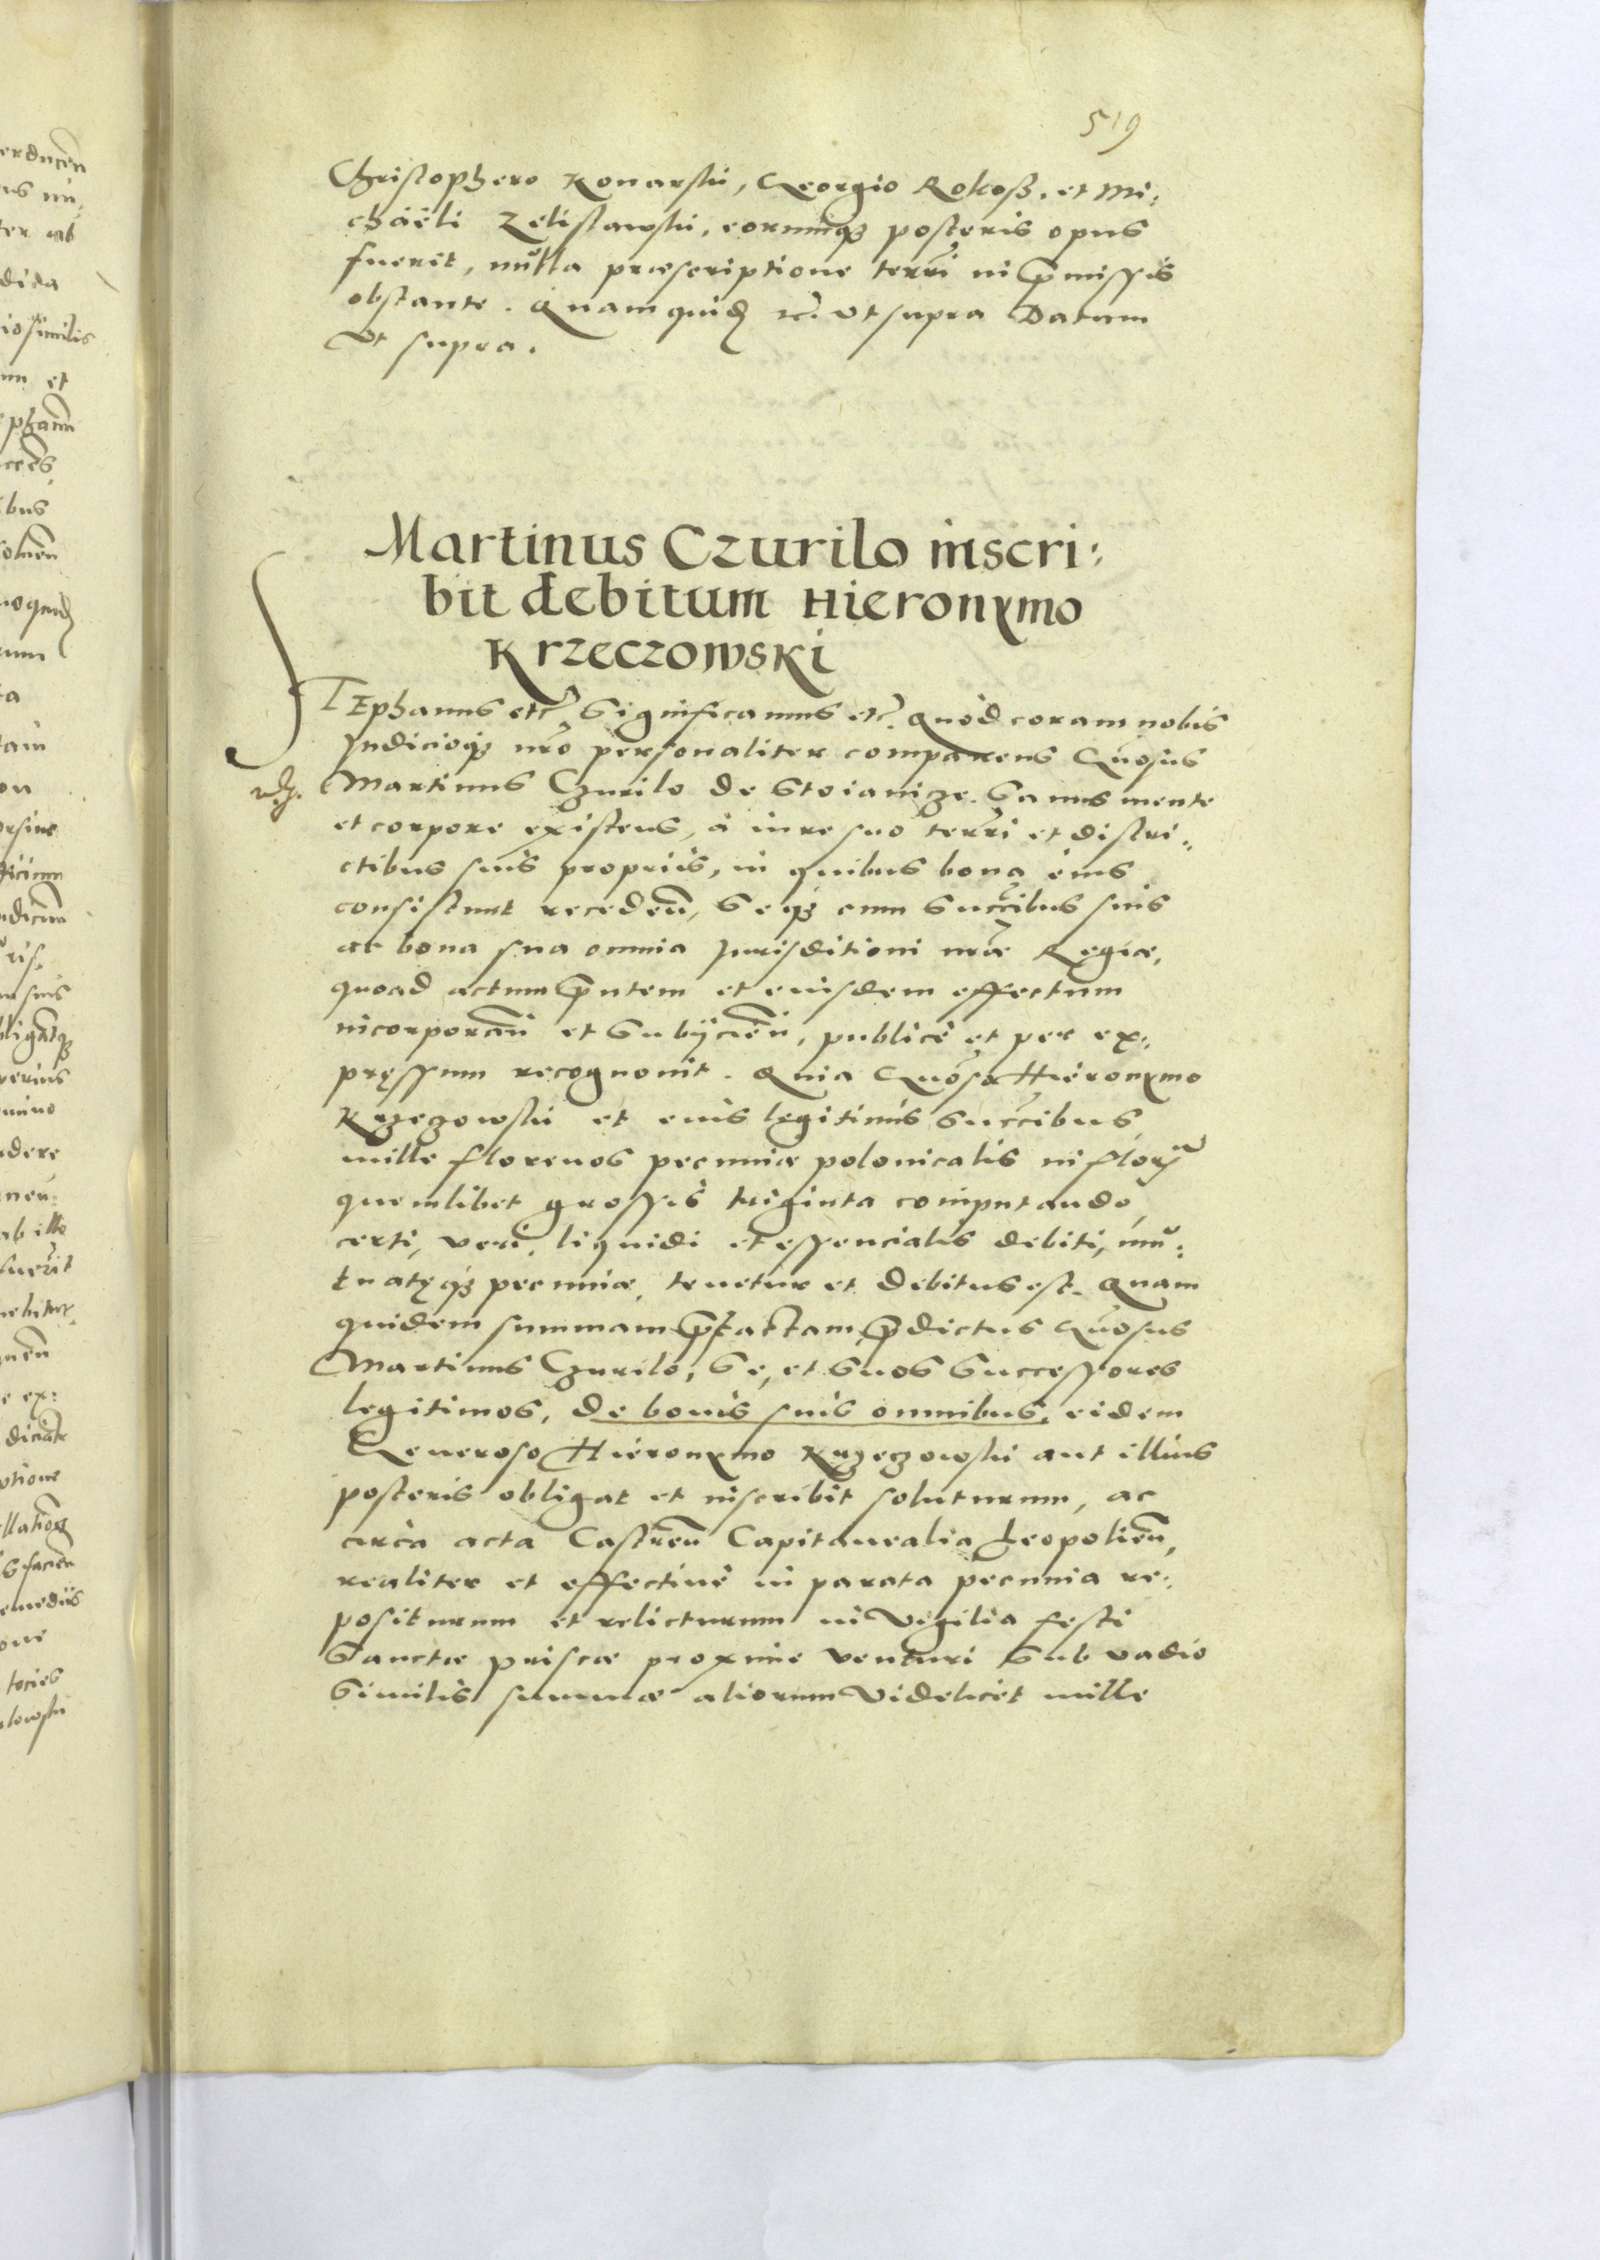 519
Christophero Konarski, Georgio Rokosß, et Mi:
chaëli Zelislawski, eorumq3 posteris opus
fuerit, nulla præscriptione terrī in p̄missis
obstante. Quamquid̃ rc̃. ut supra Datum
Ut supra.
Martinus Czurilo inscri:
bit debitum Hieronymo
Krzeczowski
STEphanus etc̃ Significamus etc̃. Quòd coram nobis
Judicioq3 nr̃o personaliter comparens Gn̄osus
Martinus Czurilo de Stoianize. Sanus mente
et corpore existens, à iure suo terrī et distri„
ctibus suis proprijs, in quibus bona eius
consistunt receden̄, Seq3 cum Succ̄ribus suis
ac bona sua omnia Jurisditioni nr̃æ Regiæ,
quoad actum p̄ntem et eiusdem effectum
incorporan̄ et Subijcien̄, publicè et per ex:
pręssum recognouit. Quia Gn̄oso Hieronymo
Krzeczowski et eius legitimis Succ̄ribus
mille florenos pecuniæ polonicalis in flor̃
quemlibet grossis triginta computando,
certi, veri, liquidi et essencialis debiti, mu:
tuatęq3 pecuniæ, tenetur et debitus est. Quam
quidem summam p̄tactam, p̄dictus Gn̄osus
Martinus Czurilo, Se, et Suos Successores
legitimos, de bonis suis omnibus, eidem
Generoso Hieronymo Krzeczowski aut illius
posteris obligat et inscribit soluturum, ac
circa acta Castren̄ Capitanealia Leopolien̄,
realiter et effectiuè in parata pecunia re:
positurum et relicturum in Vigilia festi
Sanctæ Priscæ proximè venturi Sub vadio
Similis summæ aliorum Videlicet mille